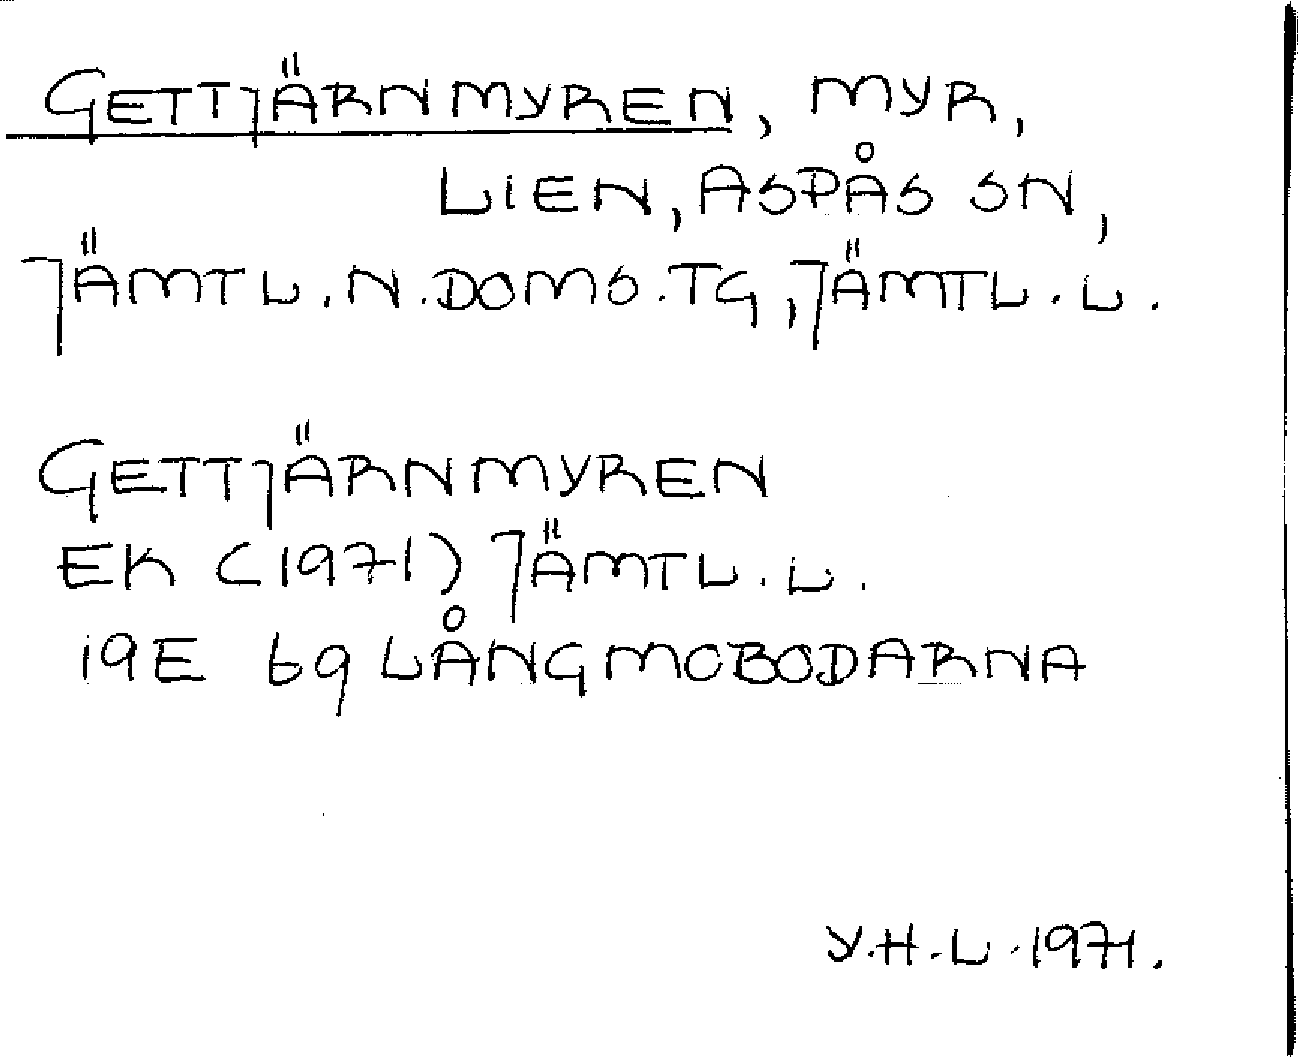 GETTJÄRNMYREN, MYR,
LIEN, ASPÅS SN,
JÄMTL. N. DOMS. TG, JÄMTL. L.
GETTJÄRNMYREN
EK (1971) JÄMTL. L.
19E 6g LÅNGMOBODARNA
Y.H.L. 1971.